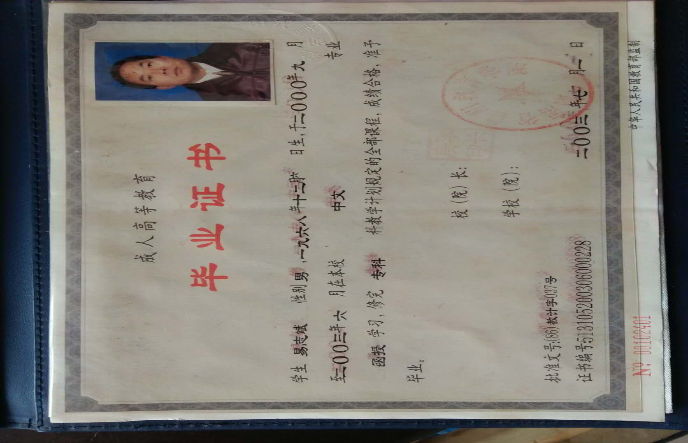 成人高等教育
毕业证书
学生 易志斌 性别 男，一九六八年十二月 日生，于二000年九 月
至二00三年六 月在本校 中文 专业
函授 学习，修完 专科 科教学计划规定的全部课程，成绩合格，准予
毕业。
校（院）长：
批准文号：(86)教计字037号 学校（院）：
证书编号：513105200306000228 二00三年七 月 一 日
№ 00102401 中华人民共和国教育部监制